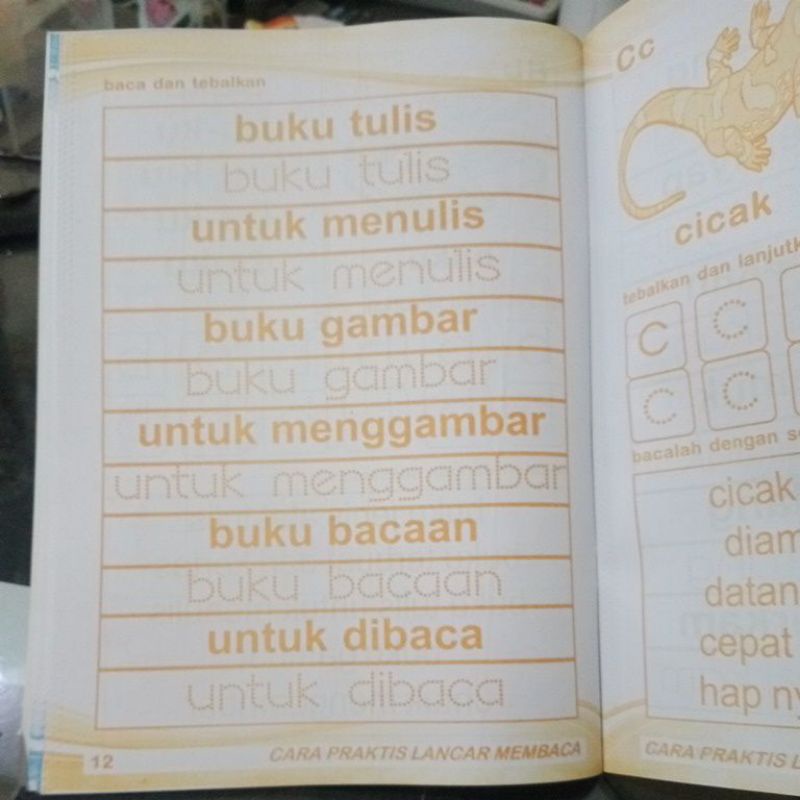 baca dan tebalkan
buku tulis
buku tulis
untuk menulis
untuk menulis
buku gambar
buku gambar
untuk menggambar
untuk menggambar
buku bacaan
buku bacaan
untuk dibaca
untuk dibaca
12
CARA PRAKTIS LANCAR MEMBACA
Cc
cicak
tebalkan dan
C C
C C
bacalah dengan
cicak
cepat
hap
CARA PRAKTIS